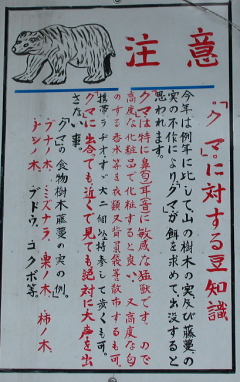 注意
「クマ」に対する豆知識
今年は例年に比して山の樹木の実及び藤蔓の
実の不作により、「クマ」が餌を求めて出没すると
思われます。
「クマ」は特に鼻耳(音)に敏感な猛獣です。ので
高度な化粧品で化粧すると良い。又高度な匂
のする香水等を衣類又背負袋等散布するも可。
携帯ラヂオ、すず大二組位持参して歩くも可。
「クマ」に出合ても近くで見ても絶対に大声を出
さない事。
「クマ」の食物樹木藤蔓の実の例。
ブナノ木、ミズナラ、栗ノ木、柿ノ木、
ナシノ木、ブドウ、コクボ等。